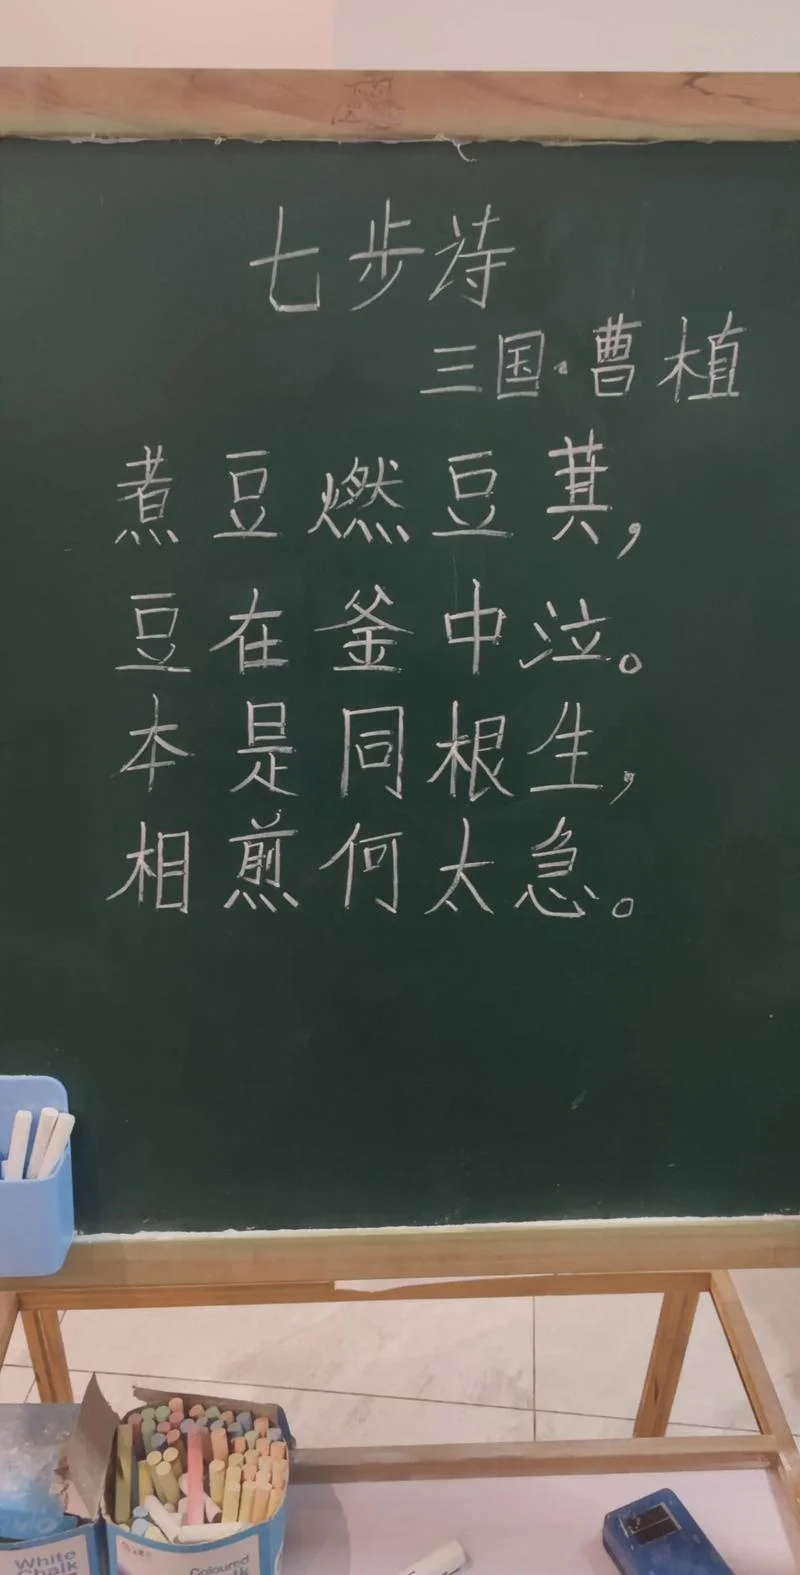 七步诗
三国·曹植
煮豆燃豆萁,
豆在釜中泣。
本是同根生,
相煎何太急。
White
Chalk
Coloured